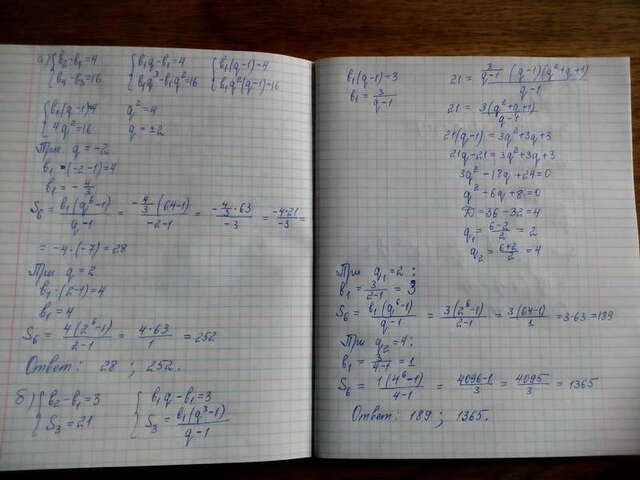 а) {b₂-b₁=4 {b₁q-b₁=4 {b₁(q-1)=4
{b₄-b₃=16 {b₁q³-b₁q²=16 {b₁q²(q-1)=16
{b₁(q-1)=4 q²=4
{4q²=16 q=±2
При q=-2
b₁·(-2-1)=4
b₁=-4/3
S₆ = b₁(q⁶-1)/(q-1) = -4/3·(64-1)/(-2-1) = -4/3·63/(-3) = -4·21/(-3) =
= -4·(-7) = 28
При q=2
b₁·(2-1)=4
b₁=4
S₆ = 4(2⁶-1)/(2-1) = 4·63/1 = 252
Ответ: 28; 252.
б) {b₂-b₁=3 {b₁q-b₁=3
{S₃=21 {S₃= b₁(q³-1)/(q-1)
b₁(q-1)=3
b₁= 3/(q-1)
21 = 3/(q-1)·(q-1)(q²+q+1)/(q-1)
21 = 3(q²+q+1)/(q-1)
21(q-1)=3q²+3q+3
21q-21=3q²+3q+3
3q²-18q+24=0
q²-6q+8=0
D=36-32=4
q₁ = (6-2)/2 = 2
q₂ = (6+2)/2 = 4
При q₁=2:
b₁ = 3/(2-1) = 3
S₆ = b₁(q⁶-1)/(q-1) = 3(2⁶-1)/(2-1) = 3(64-1)/1 = 3·63=189
При q₂=4:
b₁ = 3/(4-1) = 1
S₆ = 1(4⁶-1)/(4-1) = (4096-1)/3 = 4095/3 = 1365
Ответ: 189; 1365.